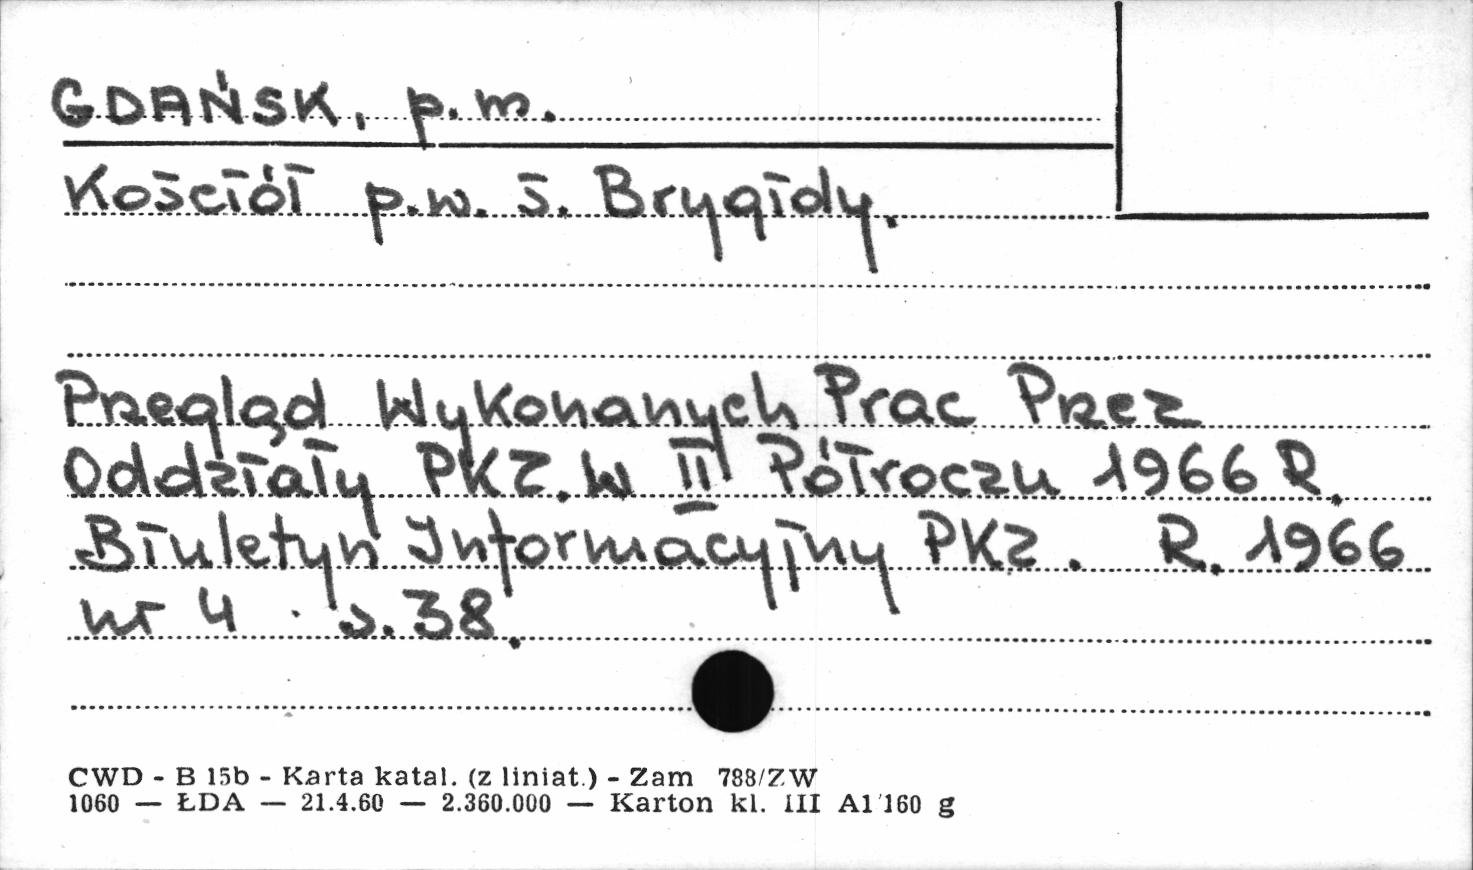 GDAŃSK, p.m.
Kościół p.w. ś. Brygidy.
Przegląd Wykonanych Prac Przez
Oddziały PKZ. W II Półroczu 1966 R.
Biuletyn Informacyjny PKZ. R. 1966
nr 4 . s. 38.
CWD - B 15b - Karta katal. (z liniat.) - Zam 788/ZW
1060 — ŁDA — 21.4.60 — 2.360.000 — Karton kl. III A1 160 g